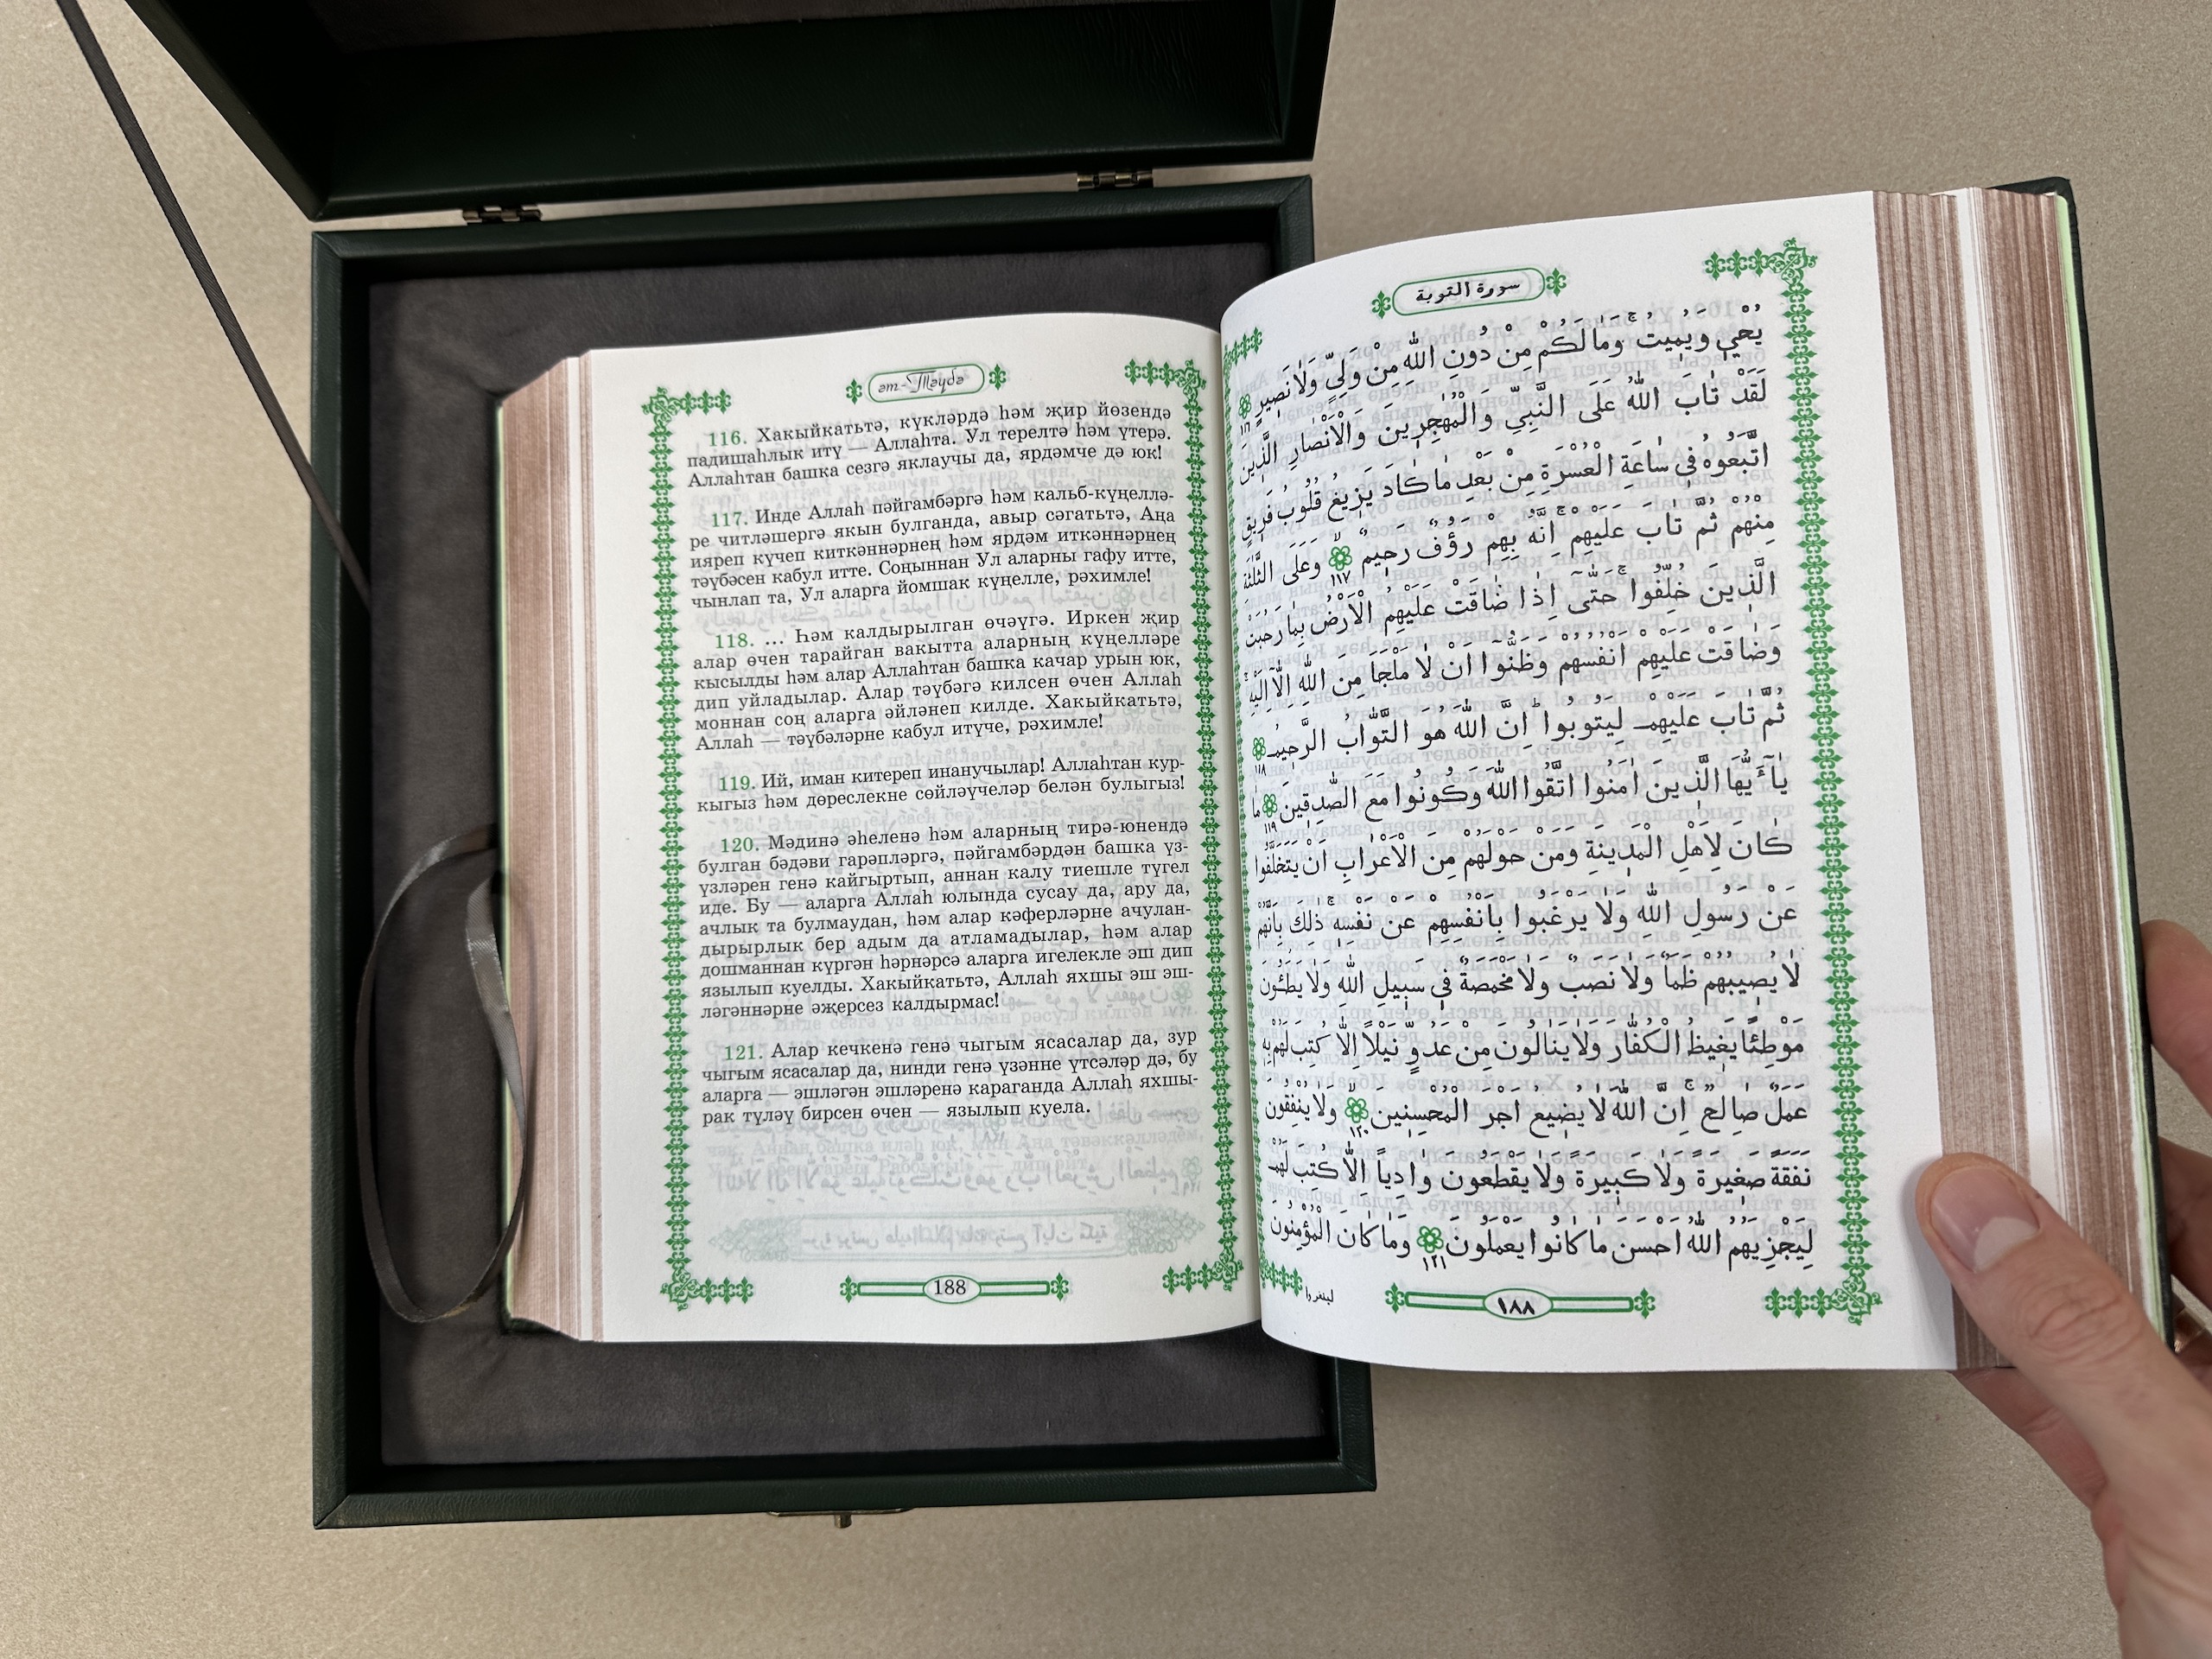 әт-Тәүбә
116. Хакыйкатьтә, күкләрдә һәм җир йөзендә
падишаһлык итү — Аллаһта. Ул терелтә һәм үтерә.
Аллаһтан башка сезгә яклаучы да, ярдәмче дә юк!
117. Инде Аллаһ пәйгамбәргә һәм кальб-күңеллә-
ре читләшергә якын булганда, авыр сәгатьтә, Аңа
ияреп күчеп киткәннәрнең һәм ярдәм иткәннәрнең
тәүбәсен кабул итте. Соңыннан Ул аларны гафу итте,
чынлап та, Ул аларга йомшак күңелле, рәхимле!
118. ... Һәм калдырылган өчәүгә. Иркен җир
алар өчен тарайган вакытта аларның күңелләре
кысылды һәм алар Аллаһтан башка качар урын юк,
дип уйладылар. Алар тәүбәгә килсен өчен Аллаһ
моннан соң аларга әйләнеп килде. Хакыйкатьтә,
Аллаһ — тәүбәләрне кабул итүче, рәхимле!
119. Ий, иман китереп инанучылар! Аллаһтан кур-
кыгыз һәм дөреслекне сөйләүчеләр белән булыгыз!
120. Мәдинә әһеленә һәм аларның тирә-юнендә
булган бәдәви гарәпләргә, пәйгамбәрдән башка үз-
үзләрен генә кайгыртып, аннан калу тиешле түгел
иде. Бу — аларга Аллаһ юлында сусау да, ару да,
ачлык та булмаудан, һәм алар кәферләрне ачулан-
дырырлык бер адым да атламадылар, һәм алар
дошманнан күргән һәрнәрсә аларга игелекле эш дип
язылып куелды. Хакыйкатьтә, Аллаһ яхшы эш эш-
ләгәннәрне әҗерсез калдырмас!
121. Алар кечкенә генә чыгым ясасалар да, зур
чыгым ясасалар да, нинди генә үзәнне үтсәләр дә, бу
аларга — эшләгән эшләренә караганда Аллаһ яхшы-
рак түләү бирсен өчен — язылып куела.
188
سورة التوبة
يُحْيٖ وَيُمٖيتُ وَمَا لَكُمْ مِنْ دُونِ اللّٰهِ مِنْ وَلِيٍّ وَلَا نَصٖيرٍ ١١٦
لَقَدْ تَابَ اللّٰهُ عَلَى النَّبِيِّ وَالْمُهَاجِرٖينَ وَالْاَنْصَارِ الَّذٖينَ
اتَّبَعُوهُ فٖي سَاعَةِ الْعُسْرَةِ مِنْ بَعْدِ مَا كَادَ يَزٖيغُ قُلُوبُ فَرٖيقٍ
مِنْهُمْ ثُمَّ تَابَ عَلَيْهِمْ اِنَّهُ بِهِمْ رَؤُفٌ رَحٖيمٌ ١١٧ وَعَلَى الثَّلٰثَةِ
الَّذٖينَ خُلِّفُوا حَتّٰٓى اِذَا ضَاقَتْ عَلَيْهِمُ الْاَرْضُ بِمَا رَحُبَتْ
وَضَاقَتْ عَلَيْهِمْ اَنْفُسُهُمْ وَظَنُّٓوا اَنْ لَا مَلْجَاَ مِنَ اللّٰهِ اِلَّٓا اِلَيْهِ
ثُمَّ تَابَ عَلَيْهِمْ لِيَتُوبُوا اِنَّ اللّٰهَ هُوَ التَّوَّابُ الرَّحٖيمُ ١١٨
يَٓا اَيُّهَا الَّذٖينَ اٰمَنُوا اتَّقُوا اللّٰهَ وَكُونُوا مَعَ الصَّادِقٖينَ ١١٩ مَا
كَانَ لِاَهْلِ الْمَدٖينَةِ وَمَنْ حَوْلَهُمْ مِنَ الْاَعْرَابِ اَنْ يَتَخَلَّفُوا
عَنْ رَسُولِ اللّٰهِ وَلَا يَرْغَبُوا بِاَنْفُسِهِمْ عَنْ نَفْسِهٖ ذٰلِكَ بِاَنَّهُمْ
لَا يُصٖيبُهُمْ ظَمَاٌ وَلَا نَصَبٌ وَلَا مَخْمَصَةٌ فٖي سَبٖيلِ اللّٰهِ وَلَا يَطَؤُنَ
مَوْطِئًا يَغٖيظُ الْكُفَّارَ وَلَا يَنَالُونَ مِنْ عَدُوٍّ نَيْلًا اِلَّا كُتِبَ لَهُمْ بِهٖ
عَمَلٌ صَالِحٌ اِنَّ اللّٰهَ لَا يُضٖيعُ اَجْرَ الْمُحْسِنٖينَ ١٢٠ وَلَا يُنْفِقُونَ
نَفَقَةً صَغٖيرَةً وَلَا كَبٖيرَةً وَلَا يَقْطَعُونَ وَادِيًا اِلَّا كُتِبَ لَهُمْ
لِيَجْزِيَهُمُ اللّٰهُ اَحْسَنَ مَا كَانُوا يَعْمَلُونَ ١٢١ وَمَا كَانَ الْمُؤْمِنُونَ
لينفروا
١٨٨